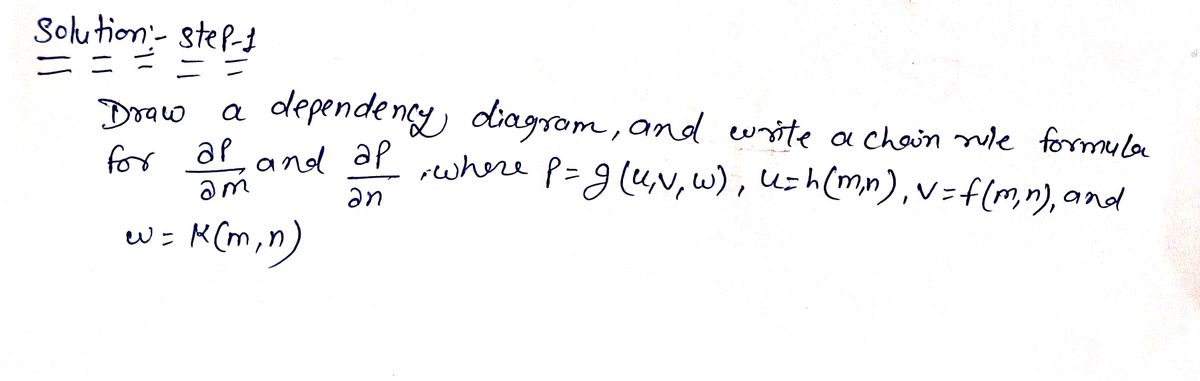 Solution:- step-1
Draw a dependency diagram, and write a chain rule formula
for ∂P/∂m and ∂P/∂n, where P = g(u,v,w), u=h(m,n), v=f(m,n), and
w = K(m,n)